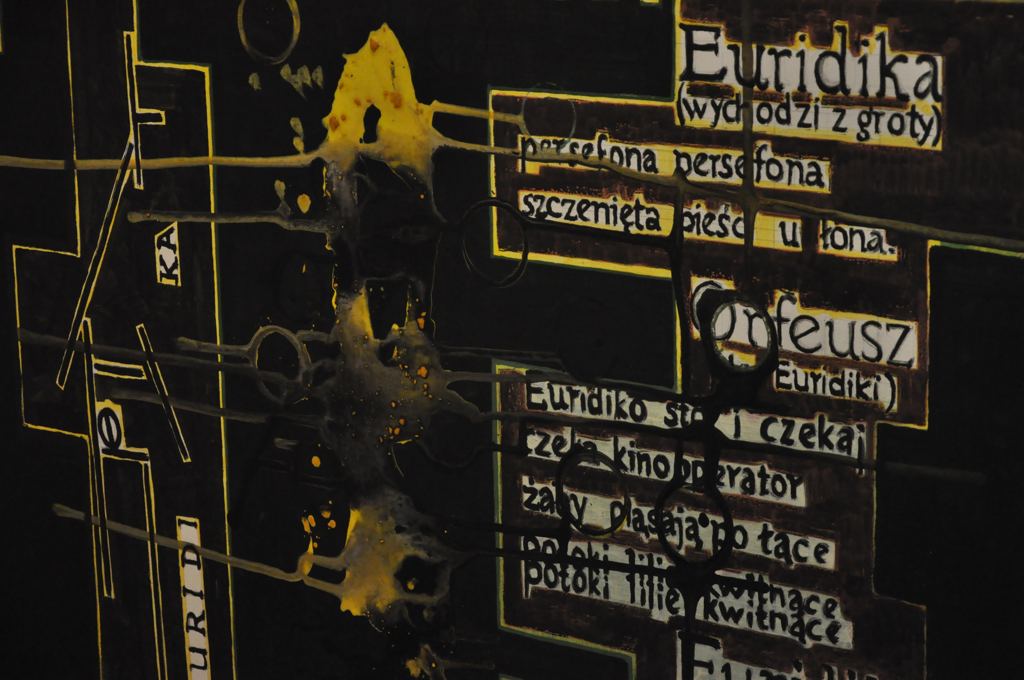 Euridika
(wychodzi z groty)
persefona persefona
szczenięta pieść u łona.
Orfeusz
Euridiki)
Euridiko stój i czekaj
rzeka kinooperator
żaby pląsają po łące
potoki lilie kwitnące
potoki lilie kwitnące
KA
URIDI